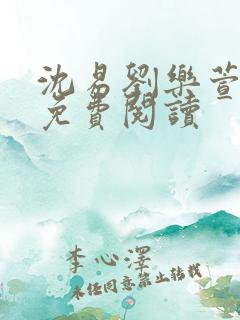 沈易劉樂萱
免費閱讀
李心澤
未经同意禁止转载